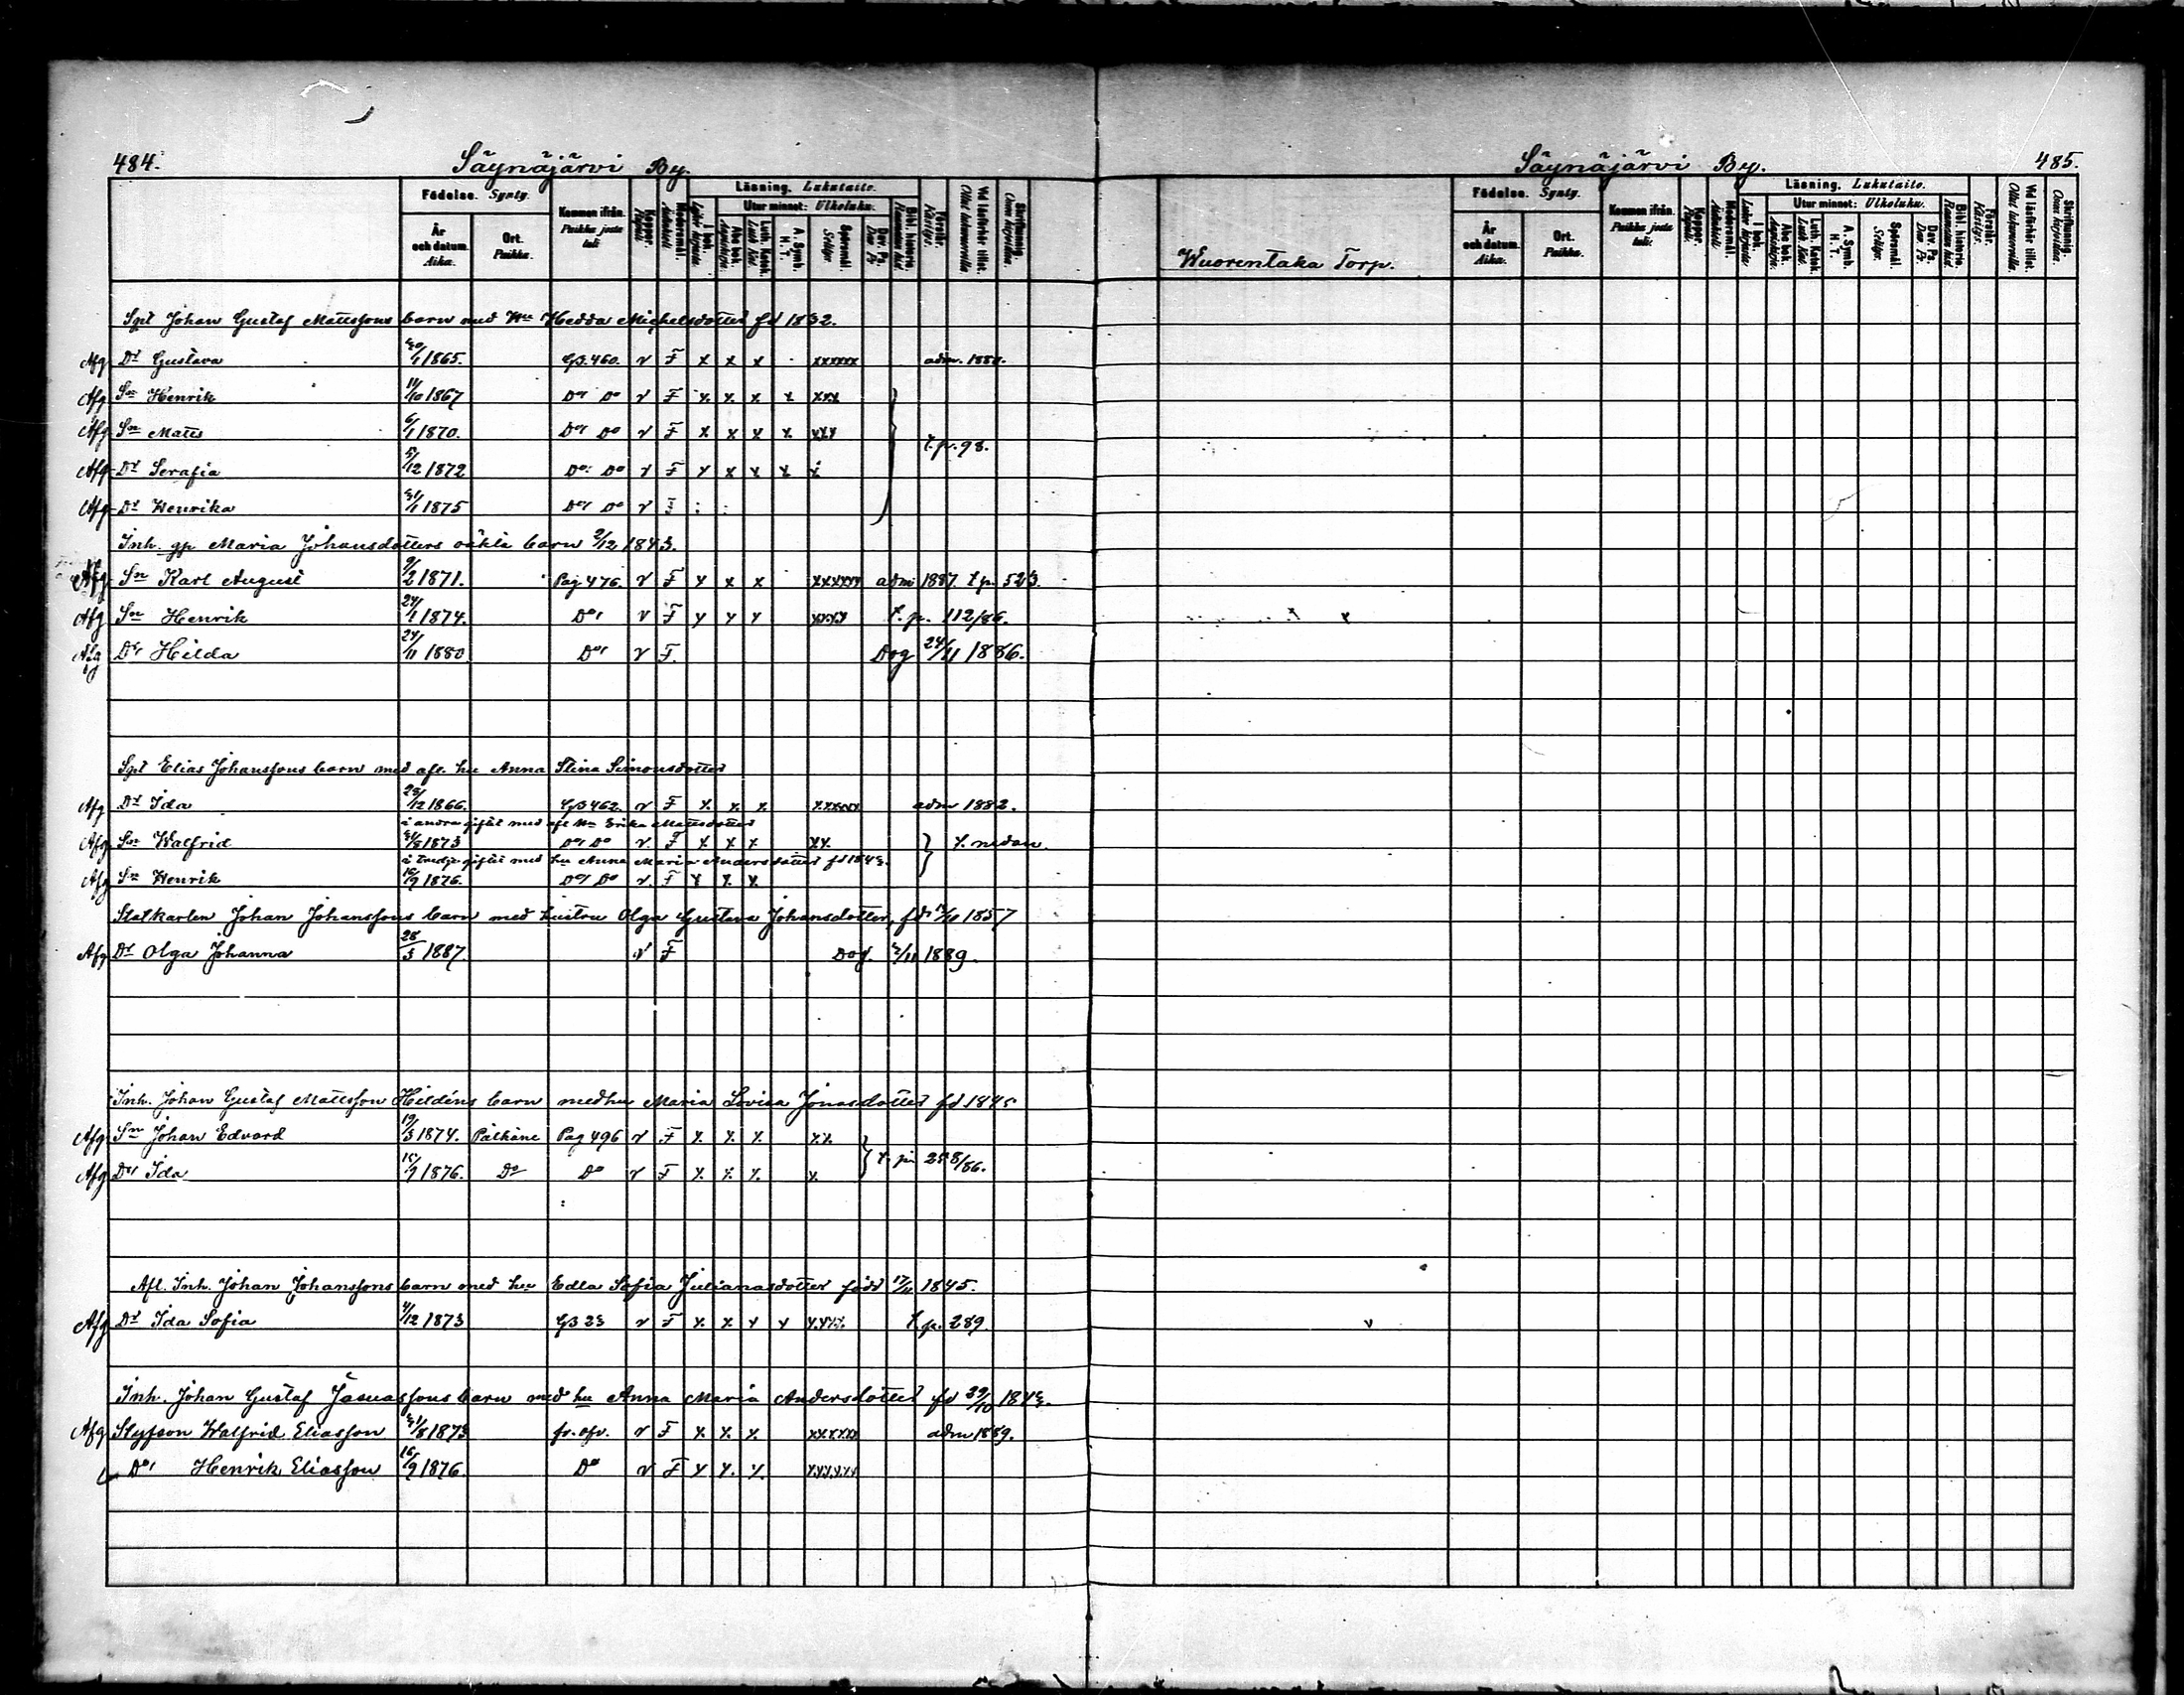 484.
Säynäjärvi By.
Födelse. Synty.
Kommen ifrån. Paikka josta tuli:
Läsning. Lukutaito.
Utur minnet: Ulkoluku.
År och datum. Aika.
Ort. Paikka.
Sgt Johan Gustaf Mattssons barn med Hu Hedda Michelsdotter fd 1832.
Afg Dr Gustava 30/1 1865. GB. 460. v F x x x xxxxxx adm. 1880.
Afg Sn Henrik 11/10 1867 Do, Do v F x x x x xxx
Afg Sn Matts 6/1 1870. Do, Do v F x x x x xxx t. p. 98.
Afg Dr Serafia 5/12 1872 Do, Do v F x x x x x
Afg Dr Henrika 31/1 1875 Do, Do v F
Inh. gp Maria Johansdotters oäkta barn 2/12 1843.
Afg Sn Karl August 9/2 1871. Pag 476. v F x x x xxxxxx adm 1887. t p. 523.
Afg Sn Henrik 24/1 1874. Do, v F x x x xxxx t. p. 112/86.
Afg Dr Hilda 24/11 1880 Do, v F. Dog 24/11 1886.
Sgt Elias Johanssons barn med afl. hu Anna Stina Simonsdotter
Afg Dr Ida 28/12 1866. GB 462. v F x x x xxxxxx adm 1882.
i andra giftet med afl Hu Erika Mattsdotter
Afg Sn Walfrid 31/8 1873 Do, Do v F x x x xx t. nedan.
i tredje giftet med hu Anna Maria Andersdotter fd 1843.
Afg Sn Henrik 16/9 1876. Do, Do v. F x x x
Statkarlen Johan Johanssons barn med hustru Olga Gustava Johansdotter, fd 1857
Afg Dr Olga Johanna 28/3 1887. v F Dog. 2/11 1889.
Inh. Johan Gustaf Mattsson Hildéns barn med hu Maria Lovisa Jonasdotter fd 1845
Afg Sn Johan Edvard 19/3 1874. Pälkäne Pag 496 v F x x x xx
Afg Dr Ida 15/9 1876. Do Do v F x x x x t. p. 288/86.
Afl. Inh. Johan Johanssons barn med hu Edla Sofia Julianasdotter född 17/11 1845.
Afg Dr Ida Sofia 4/12 1873 GB 23 v F x x x x xxxx t. p. 289.
Inh. Johan Gustaf Josuassons barn med hu Anna Maria Andersdotter fd 29/10 1843.
Afg Styfson Walfrid Eliasson 31/8 1873 fr. ofv. v F x x x xxxxxx adm 1889.
Do, Henrik Eliasson 16/9 1876. Do v F x x x xxxxxx
Säynäjärvi By.
485.
Wuorentaka Torp.
Födelse. Synty.
Kommen ifrån. Paikka josta tuli:
Läsning. Lukutaito.
Utur minnet: Ulkoluku.
År och datum. Aika.
Ort. Paikka.